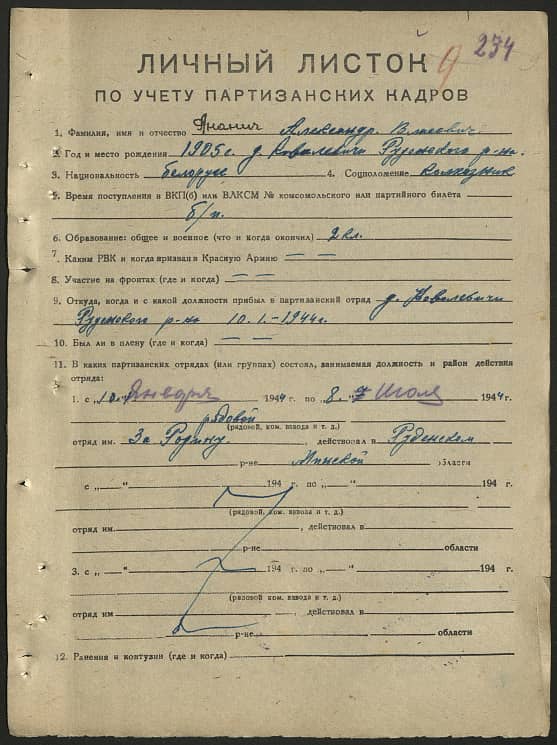 234
9
ЛИЧНЫЙ ЛИСТОК
ПО УЧЕТУ ПАРТИЗАНСКИХ КАДРОВ
1. Фамилия, имя и отчество Ананич Александр
2. Год и место рождения 1905 г. д. Ковалевичи Руденского р-на.
3. Национальность белорус 4. Соцположение колхозник
5. Время поступления в ВКП(б) или ВЛКСМ № комсомольского или партийного билета
б/п.
6. Образование: общее и военное (что и когда окончил) 2 кл.
7. Каким РВК и когда призван в Красную Армию — —
8. Участие на фронтах (где и когда) — —
9. Откуда, когда и с какой должности прибыл в партизанский отряд д. Ковалевичи
Руденского р-на 10.1.-1944г.
10. Был ли в плену (где и когда) — —
11. В каких партизанских отрядах (или группах) состоял, занимаемая должность и район действия
отряда:
1. с „10" Января 1944 г. по „8" Июля 1944 г.
рядовой
(рядовой, ком. взвода и т. д.)
отряд им. За Родину, действовал в Руденском
р-не Минской области
с „ — " 194 г. по „ — " 194 г.
(рядовой, ком. взвода и т. д.)
отряд им. , действовал в
р-не области
3. с „ — " 194 г. по „ — " 194 г.
(рядовой, ком. взвода и т. д.)
отряд им , действовал в
р-не области
12. Ранения и контузии (где и когда)